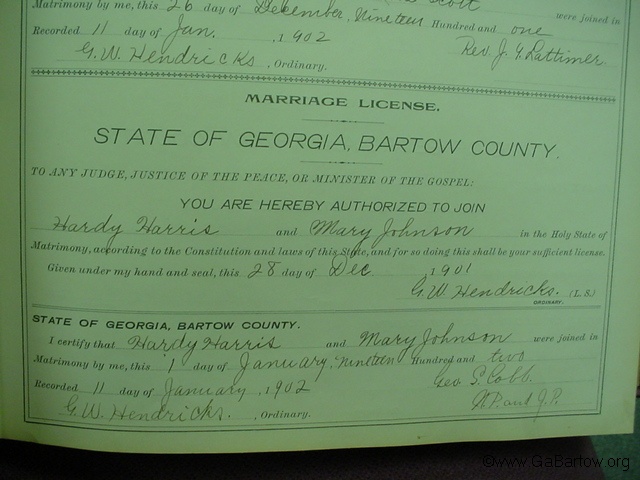 Matrimony by me, this 26 day of December, Nineteen Hundred and one were joined in
Recorded 11 day of Jan. , 1902 Rev. J. G. Lattimer.
G. W. Hendricks , Ordinary.
MARRIAGE LICENSE.
STATE OF GEORGIA, BARTOW COUNTY.
TO ANY JUDGE, JUSTICE OF THE PEACE, OR MINISTER OF THE GOSPEL:
YOU ARE HEREBY AUTHORIZED TO JOIN
Hardy Harris and Mary Johnson in the Holy State of
Matrimony, according to the Constitution and laws of this State, and for so doing this shall be your sufficient license.
Given under my hand and seal, this 28 day of Dec , 1901
G. W. Hendricks. (L. S.)
ORDINARY.
STATE OF GEORGIA, BARTOW COUNTY.
I certify that Hardy Harris and Mary Johnson were joined in
Matrimony by me, this 1 day of January, Nineteen Hundred and two
Recorded 11 day of January , 1902 Geo. S. Cobb.
G. W. Hendricks. , Ordinary. J. P.
©www.GaBartow.org